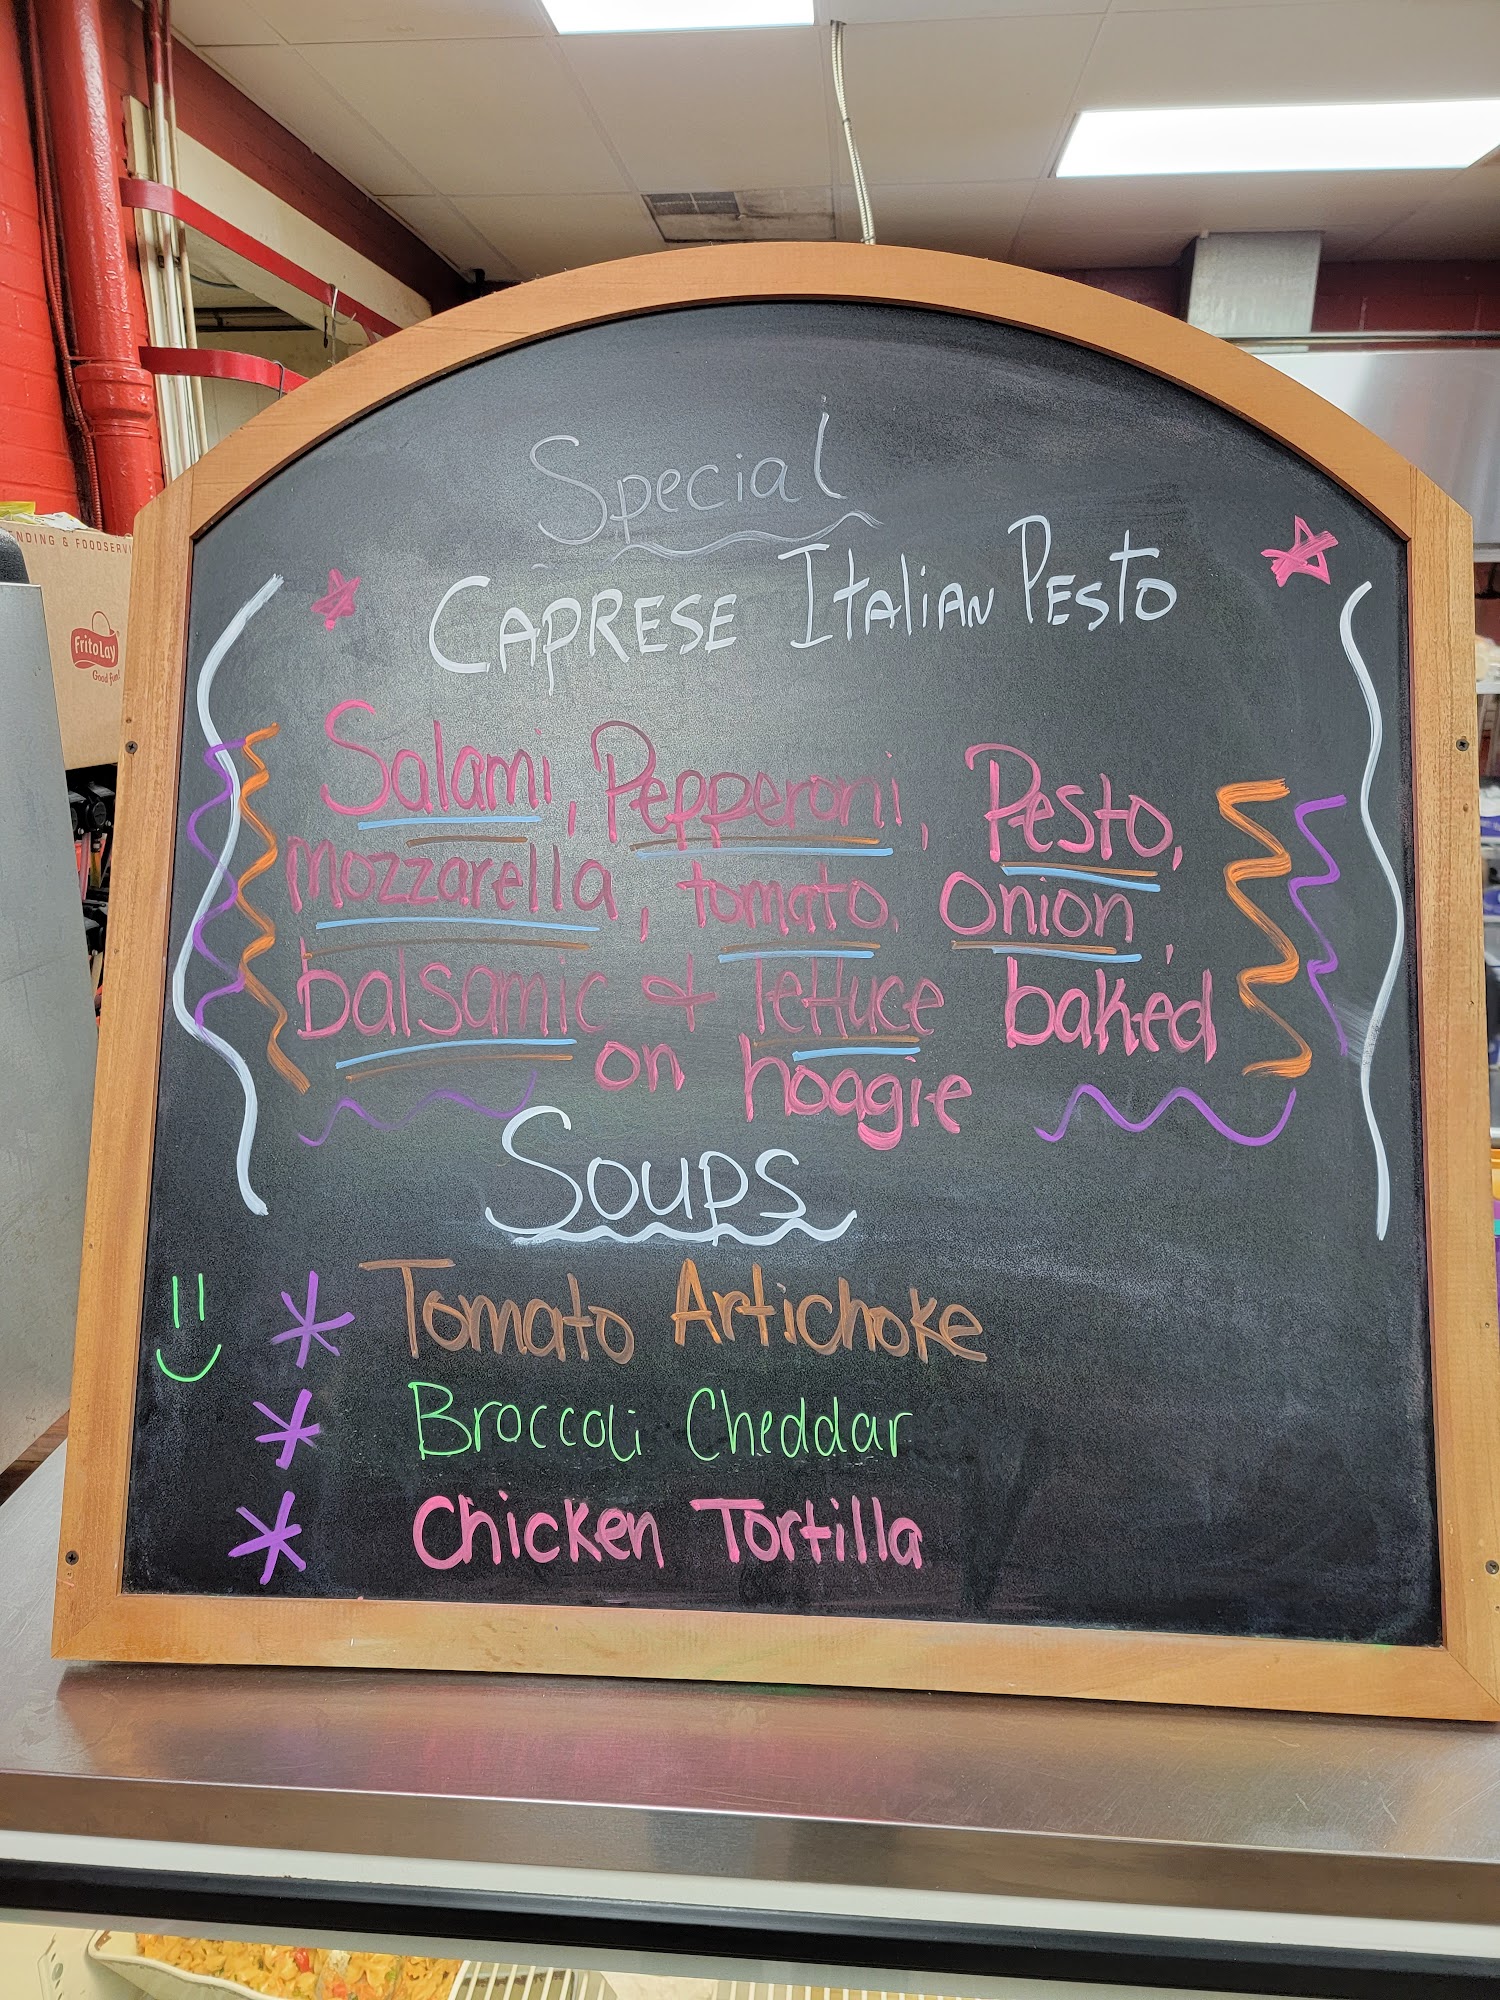 Special
CAPRESE ITAlIAN PESTO
Salami, Pepperoni, Pesto,
mozzarella, tomato, onion,
balsamic & lettuce baked
on hoagie
SOUPS
Tomato Artichoke
Broccoli Cheddar
Chicken Tortilla
NDING & FOODSERVI
FritoLay
Good fun!